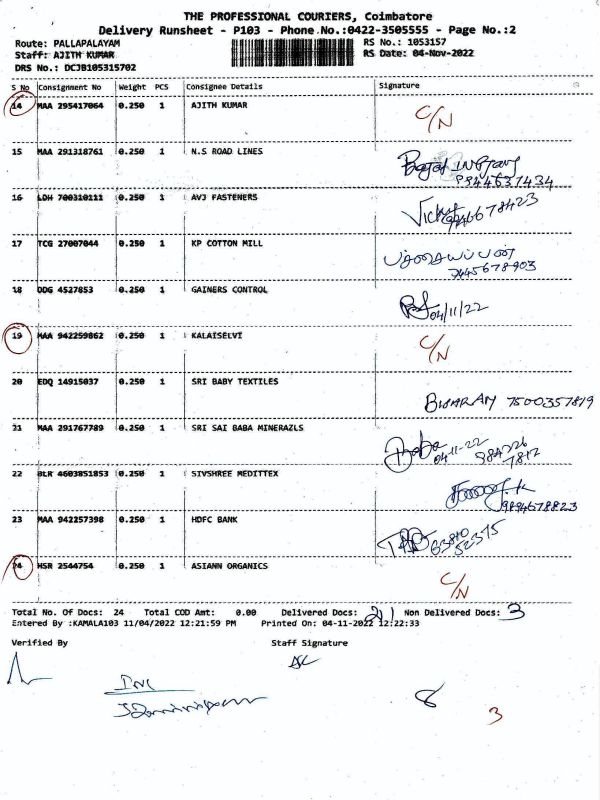 THE PROFESSIONAL COURIERS, Coimbatore
Delivery Runsheet - P103 - Phone No.:0422-3505555 - Page No.:2
Route: PALLAPALAYAM RS No.: 1053157
Staff: AJITH KUMAR RS Date: 04-Nov-2022
DRS No.: DCJB105315702
S No Consignment No Weight PCS Consignee Details Signature
14 MAA 295417064 0.250 1 AJITH KUMAR C/N
15 MAA 291318761 0.250 1 N.S ROAD LINES
9944637434
16 LDH 700310111 0.250 1 AVJ FASTENERS
17 TCG 27007044 0.250 1 KP COTTON MILL
18 DDG 4527853 0.250 1 GAINERS CONTROL
04/11/22
19 MAA 942259862 0.250 1 KALAISELVI C/N
20 EDQ 14915037 0.250 1 SRI BABY TEXTILES
7500357819
21 MAA 291767789 0.250 1 SRI SAI BABA MINERAZLS
04-11-22
22 BLR 4603851853 0.250 1 SIVSHREE MEDITTEX
23 MAA 942257398 0.250 1 HDFC BANK
24 HSR 2544754 0.250 1 ASIANN ORGANICS
C/N
Total No. Of Docs: 24 Total COD Amt: 0.00 Delivered Docs: 21 Non Delivered Docs: 3
Entered By :KAMALA103 11/04/2022 12:21:59 PM Printed On: 04-11-2022 12:22:33
Verified By Staff Signature
8
3